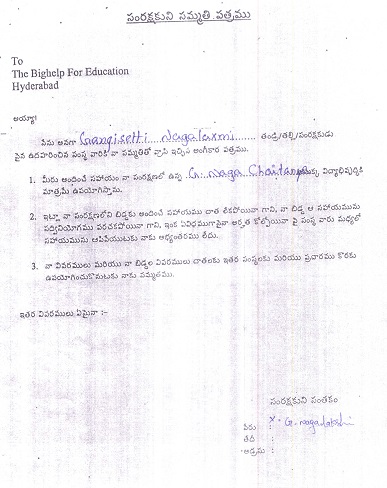 సంరక్షకుని సమ్మతి పత్రము
To
The Bighelp For Education
Hyderabad
అయ్యా!
నేను అనగా Gangisetti Nagalaxmi తండ్రి/తల్లి/సంరక్షకుడు
పైన ఉదహరించిన సంస్థ వారికి నా సమ్మతితో వ్రాసి ఇచ్చిన అంగీకార పత్రము.
1. మీరు అందించే సహాయం నా సంరక్షణలో ఉన్న G. Naga Chaitanya యొక్క విద్యాభివృద్ధికి
మాత్రమే ఉపయోగిస్తాను.
2. ఇట్లా నా సంరక్షణలోని బిడ్డకు అందించే సహాయము దాత లేకపోయినా గాని, నా బిడ్డ ఆ సహాయమును
సద్వినియోగము పరచకపోయినా గాని, ఇంక ఏవిధముగానైనా అర్హత కోల్పోయినా పై సంస్థ వారు మధ్యలో
సహాయమును ఆపివేయుటకు నాకు అభ్యంతరము లేదు.
3. నా వివరములు మరియు నా బిడ్డల వివరములు దాతలకు ఇతర సంస్థలకు మరియు ప్రచారము కొరకు
ఉపయోగించుకొనుటకు నాకు సమ్మతము.
ఇతర వివరములు ఏమైనా :-
సంరక్షకుని సంతకం
పేరు : x. G. nagalakshi
తేదీ :
అడ్రసు :